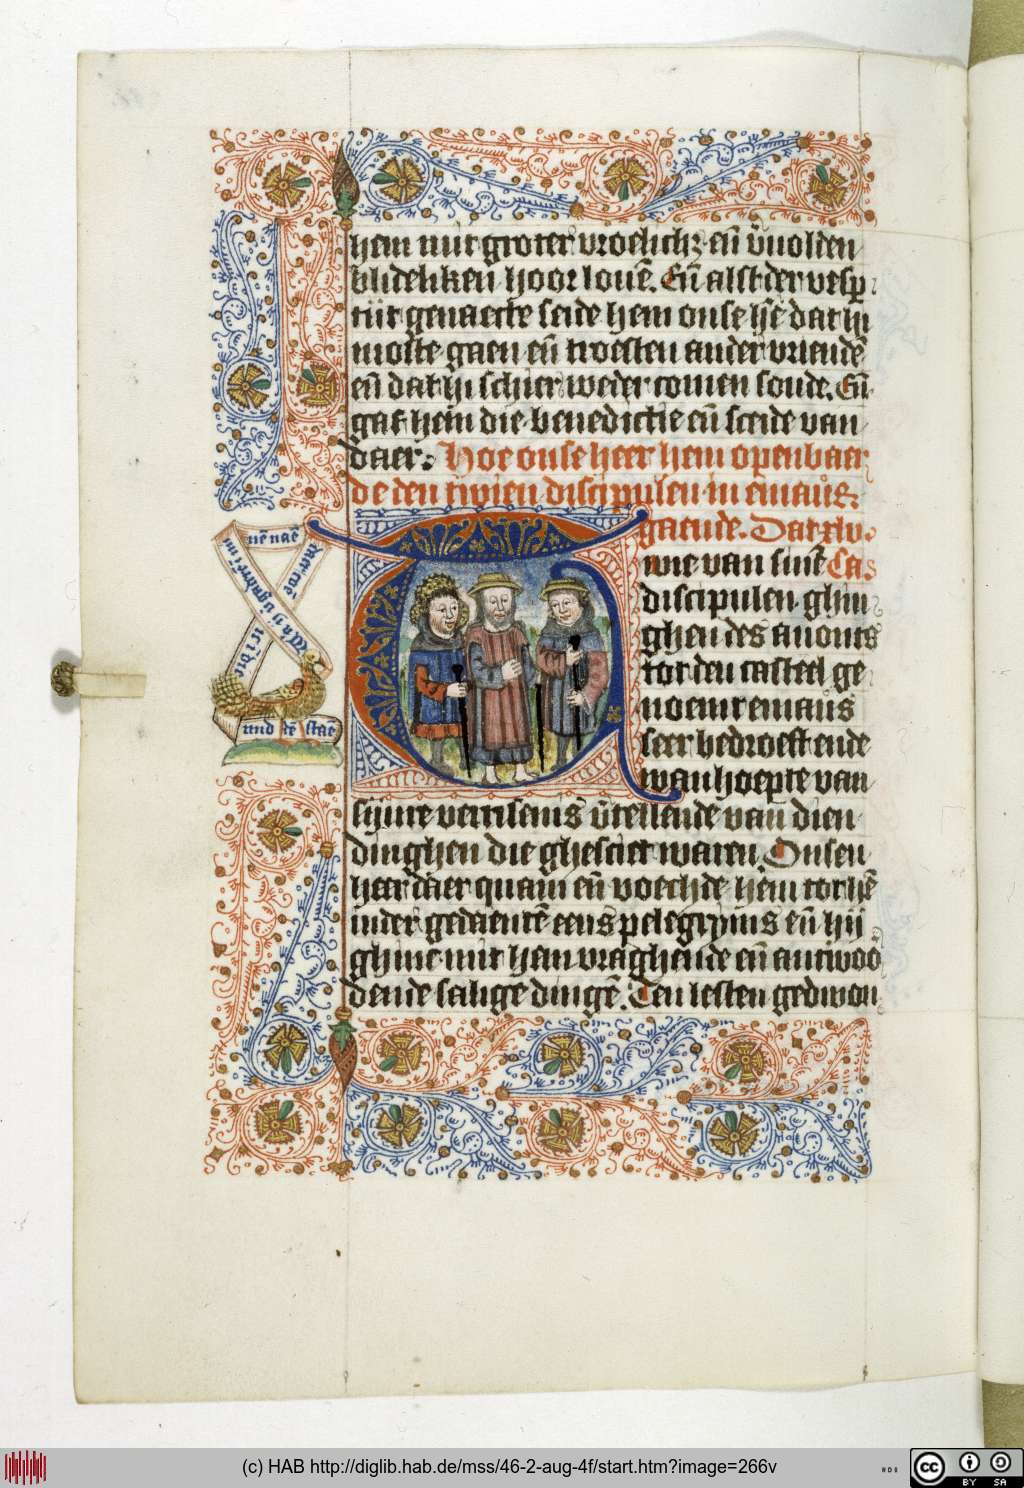 hem mit groter vroelich; eñ v̄uolden
blideliken hoor louē. Eñ alst der vesp̄
tijt genaecte seide hem onse hē dat hi
moste gaen eñ troesten ander vriendē
eñ dat hi schier weder comen soude. Eñ
gaf hem die benedictie eñ sceide van
daer. Hoe onse heer hem openbaer
de den twien discipulen in emaus
gaende. Dat xlv.
wie van sinē Ca
discipulen ghin
ghen des auonts
tot den casteel ge
noemt emaus
seer bedroeft ende
wanhoepte van
sijnre verrisenis v̄tellende van dien
dinghen die ghesciet waren. Onsen
heer daer quam eñ voechde hem tot hē
inder gedaentē eens pelegryms eñ hij
ghinc mit hem vraghende eñ antwoō
dende salige dingē. Ten lesten gedwon
nē naē
und tē staē
(c) HAB http://diglib.hab.de/mss/46-2-aug-4f/start.htm?image=266v
cc BY SA